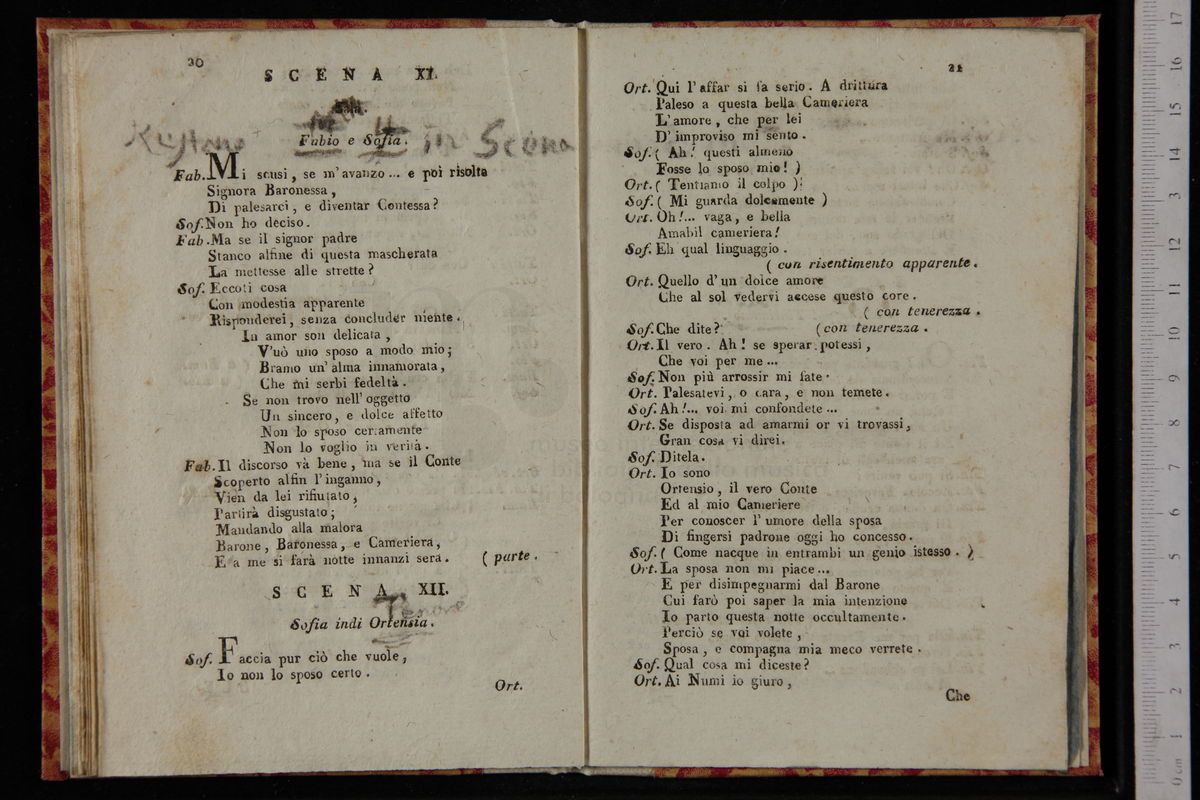 20
SCENA XI.
Sala.
Fabio e Sofia.
in Scena
Fab. Mi scusi, se m'avanzo... e poi risolta
Signora Baronessa,
Di palesarci, e diventar Contessa?
Sof. Non ho deciso.
Fab. Ma se il signor padre
Stanco alfine di questa mascherata
La mettesse alle strette?
Sof. Eccoti cosa
Con modestia apparente
Risponderei, senza concluder niente.
In amor son delicata,
V'uò uno sposo a modo mio;
Bramo un'alma innamorata,
Che mi serbi fedeltà.
Se non trovo nell'oggetto
Un sincero, e dolce affetto
Non lo sposo certamente
Non lo voglio in verità.
Fab. Il discorso và bene, ma se il Conte
Scoperto alfin l'inganno,
Vien da lei rifiutato,
Partirà disgustato;
Mandando alla malora
Barone, Baronessa, e Cameriera,
E a me si farà notte innanzi sera. (parte.
SCENA XII.
Tenore
Sofia indi Ortensia.
Sof. Faccia pur ciò che vuole,
Io non lo sposo certo.
Ort.
21
Ort. Qui l'affar si fa serio. A drittura
Paleso a questa bella Cameriera
L'amore, che per lei
D'improviso mi sento.
Sof. (Ah! questi almeno
Fosse lo sposo mio!)
Ort. (Tentiamo il colpo)
Sof. (Mi guarda dolcemente)
Ort. Oh!... vaga, e bella
Amabil cameriera!
Sof. Eh qual linguaggio.
(con risentimento apparente.
Ort. Quello d'un dolce amore
Che al sol vedervi accese questo core.
(con tenerezza.
Sof. Che dite? (con tenerezza.
Ort. Il vero. Ah! se sperar potessi,
Che voi per me...
Sof. Non più arrossir mi fate.
Ort. Palesatevi, o cara, e non temete.
Sof. Ah!... voi mi confondete...
Ort. Se disposta ad amarmi or vi trovassi,
Gran cosa vi direi.
Sof. Ditela.
Ort. Io sono
Ortensio, il vero Conte
Ed al mio Cameriere
Per conoscer l'umore della sposa
Di fingersi padrone oggi ho concesso.
Sof. (Come nacque in entrambi un genio istesso.)
Ort. La sposa non mi piace...
E per disimpegnarmi dal Barone
Cui farò poi saper la mia intenzione
Io parto questa notte occultamente.
Perciò se voi volete,
Sposa, e compagna mia meco verrete.
Sof. Qual cosa mi diceste?
Ort. Ai Numi io giuro,
Che